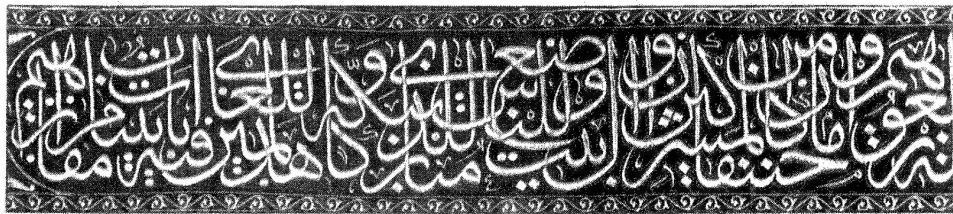 حنيفا وما كان من المشركين ان اول بيت وضع للناس للذي ببكة مباركا وهدى للعالمين فيه آيات بينات مقام ابراهيم